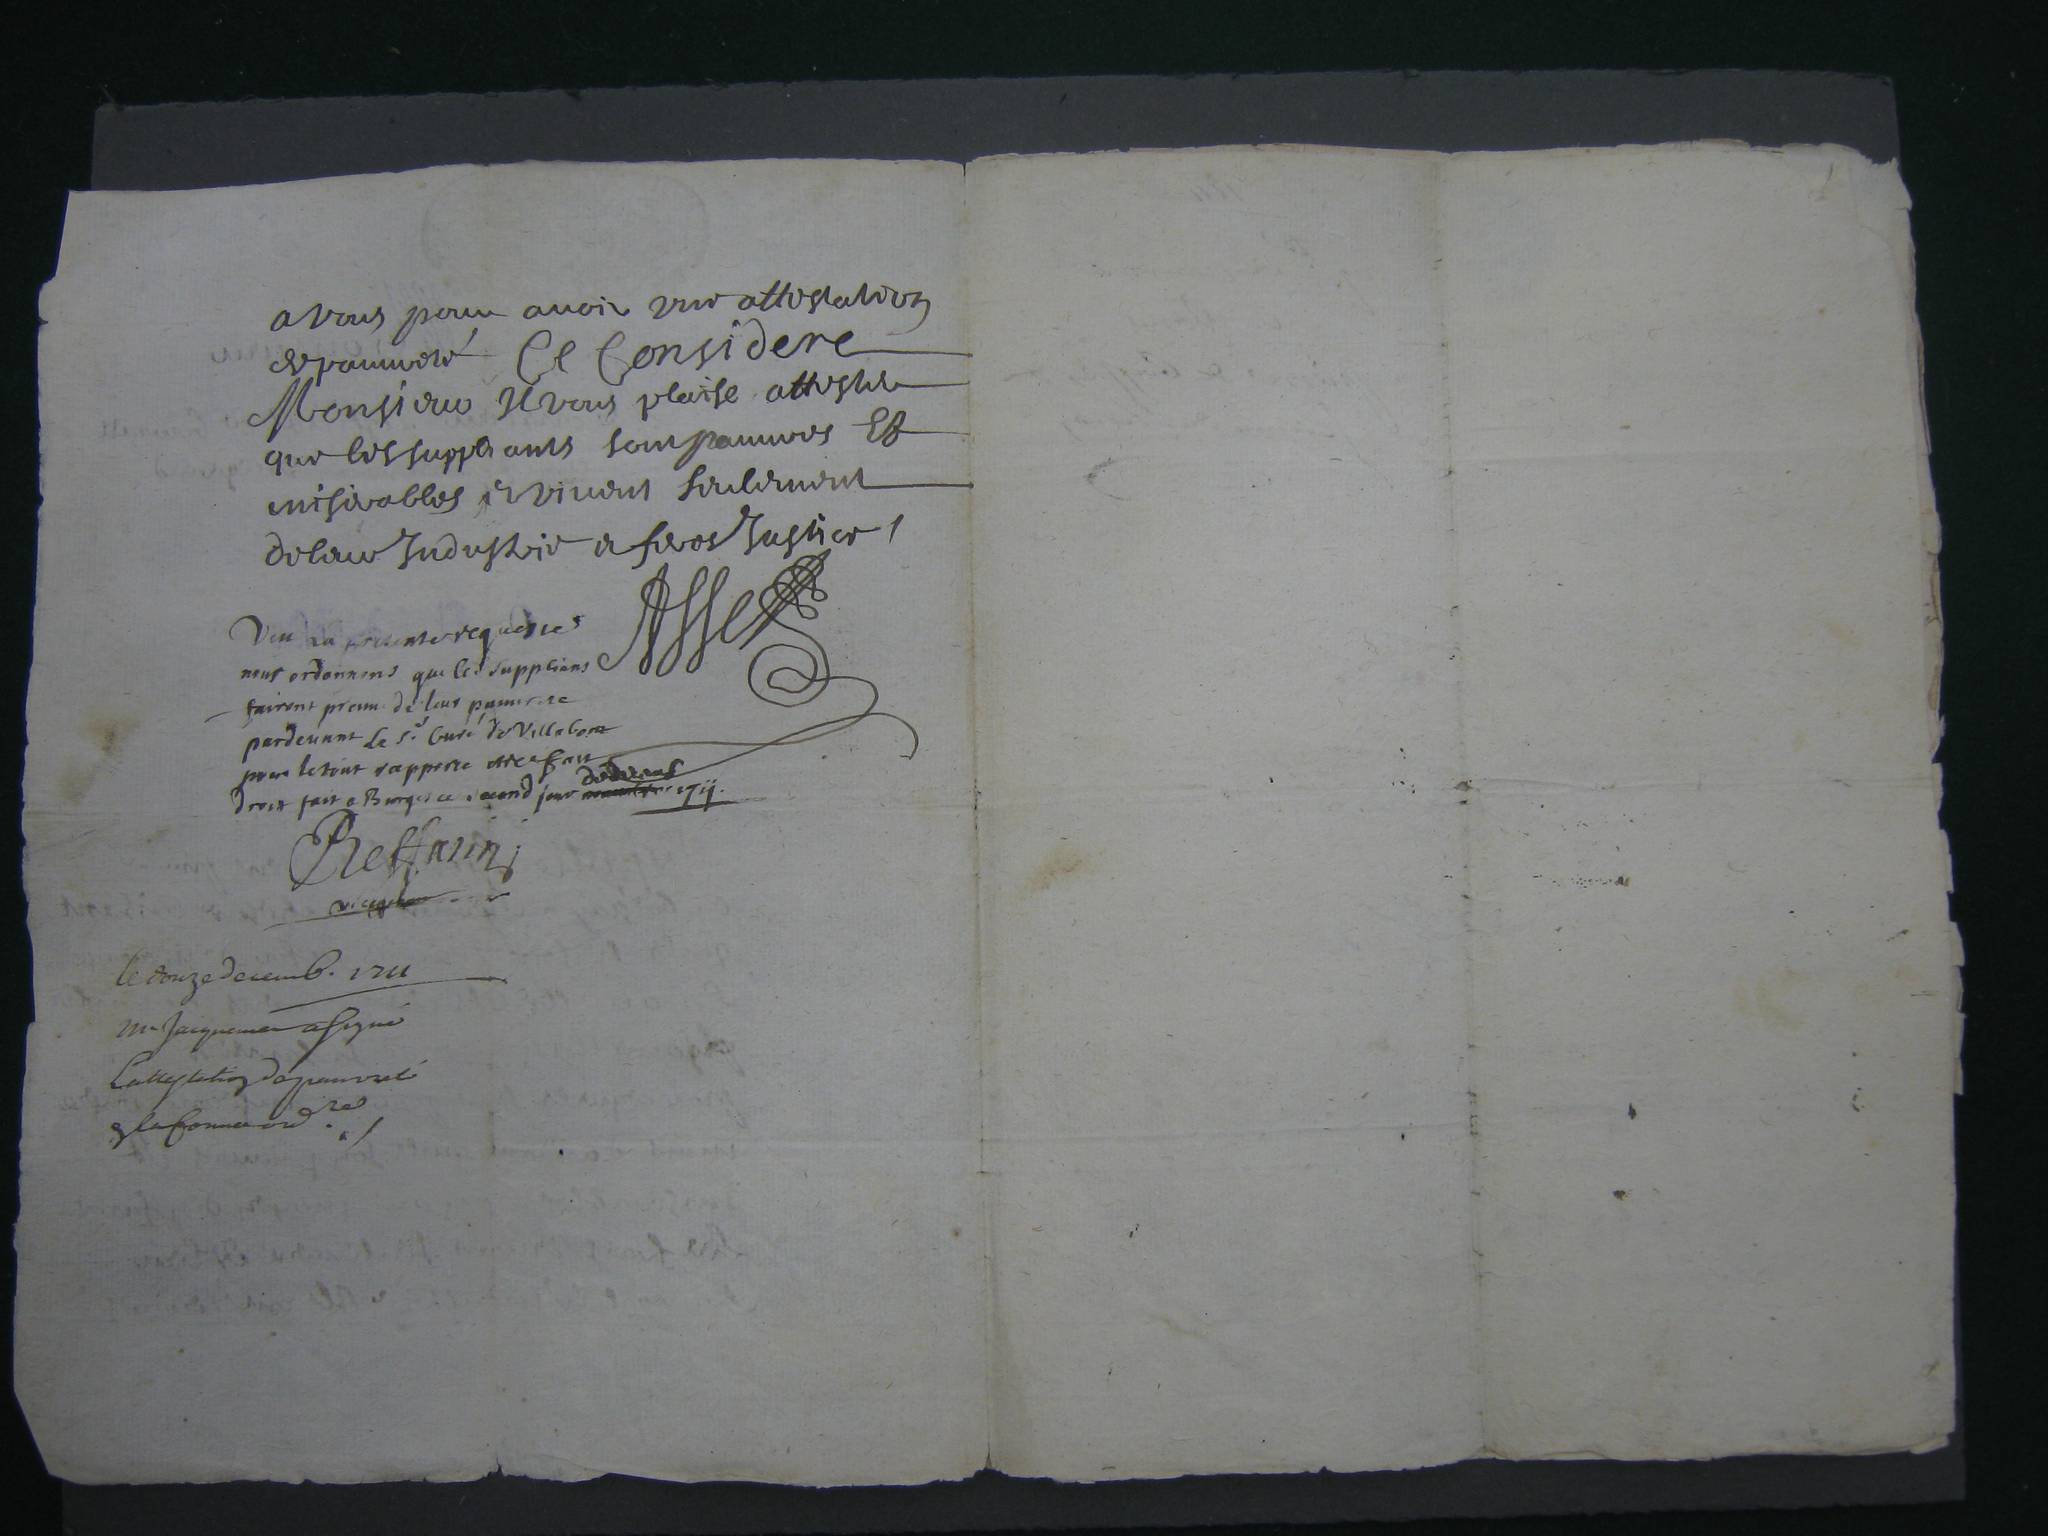 a vous pour avoir une attestation
de pauureté Ce Consideré
Monsieur Il vous plaise attester
que les suppliants sont pauures Et
miserables et viuent seulement
de leur Industrie et feres Justice /
Asse
Veu La presente requeste
nous ordonnons que les supplians
fairont preuue de leur pauurete
pardeuant Le Sr Curé de Villabont
pour le tout rapporté estre fait
droit fait a Burges ce second jour 1711.
le douze decemb. 1711
Mr Jacquemen a signé
L'attestation de pauureté